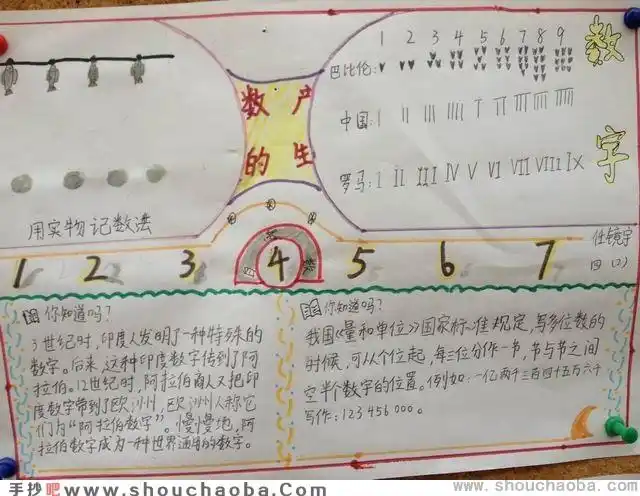 数字
数产
的生
1 2 3 4 5 6 7 8 9
巴比伦:
中国: I II III IIII T TT TTT TTTT
罗马: I II III IV V VI VII VIII IX
用实物记数法
1 2 3 4 5 6 7
四(2)
你知道吗?
3世纪时,印度人发明了一种特殊的
数字。后来,这种印度数字传到了阿
拉伯。12世纪时,阿拉伯商人又把印
度数字带到了欧洲州,欧洲州人称它
们为“阿拉伯数字”。慢慢地,阿
拉伯数字成为一种世界通用的数字。
你知道吗?
我国《量和单位》国家标准规定,写多位数的
时候,可从个位起,每三位分作一节,节与节之间
空半个数字的位置。例如:一亿两千三百四十五万六千
写作:123 456 000。
手抄吧 www.shouchaoba.com
www.shouchaoba.com